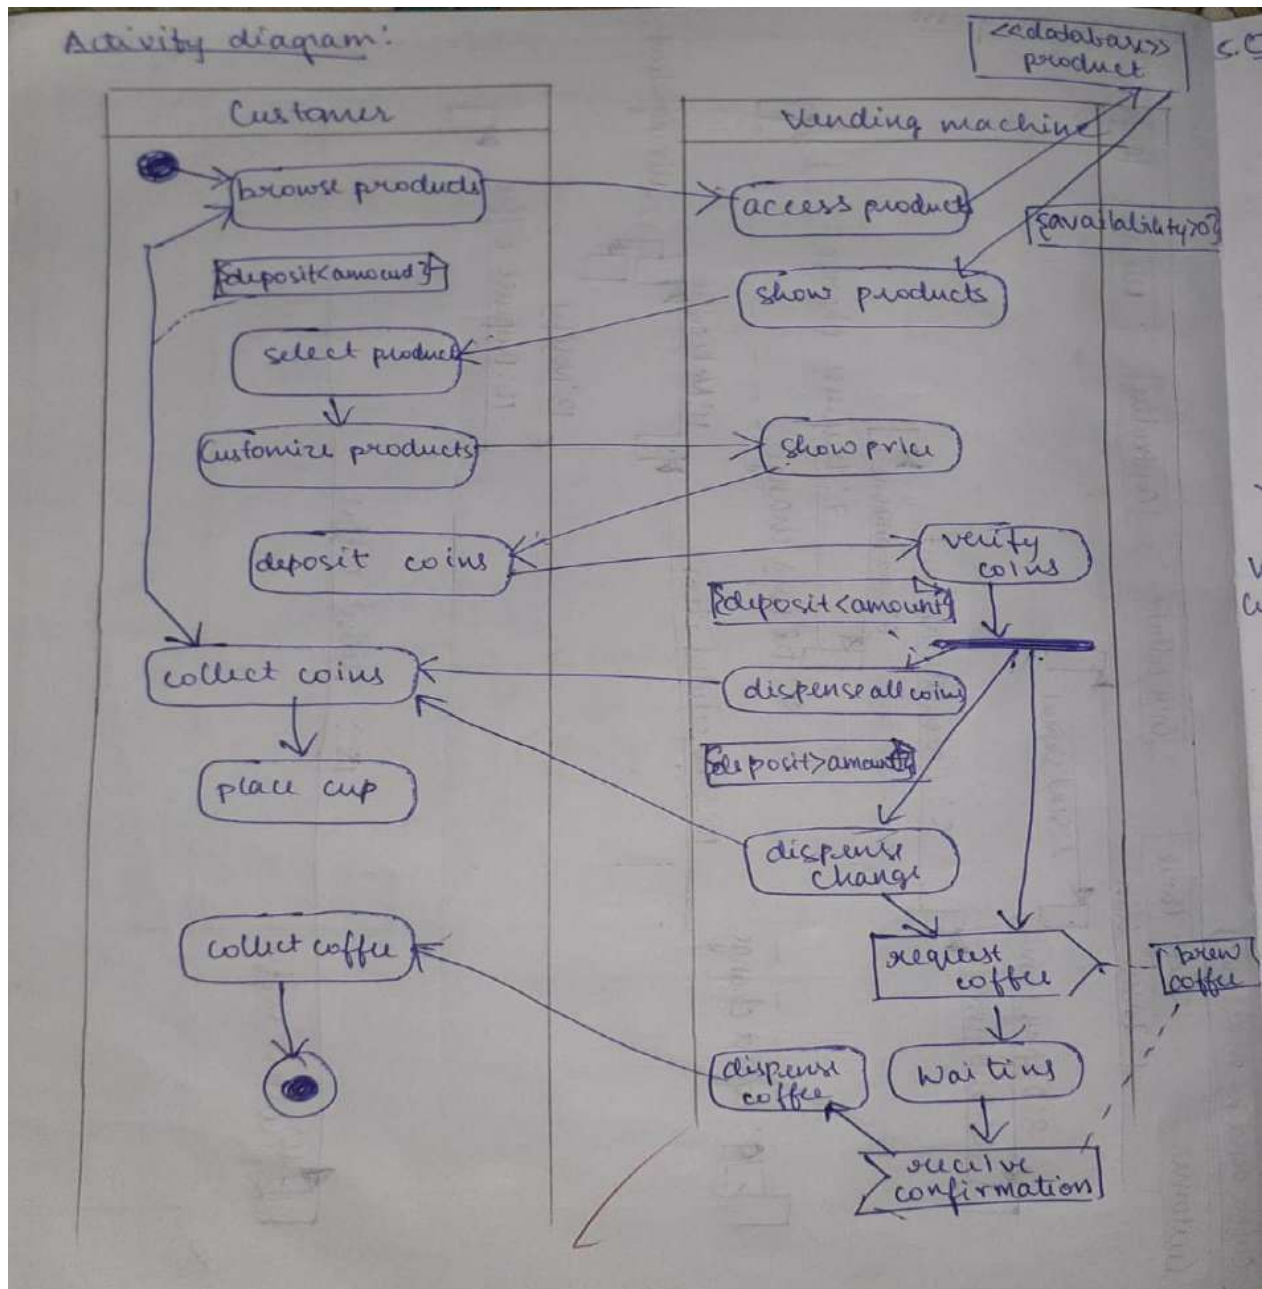 Activity diagram:
<<database>>
product
Customer
Vending machine
browse products
access products
{availability>0}
{deposit<amount}
show products
select product
Customize products
show price
deposit coins
verify
coins
{deposit<amount}
collect coins
dispense all coins
{deposit>amount}
place cup
dispense
change
collect coffee
request
coffee
brew
coffee
dispense
coffee
Waiting
receive
confirmation